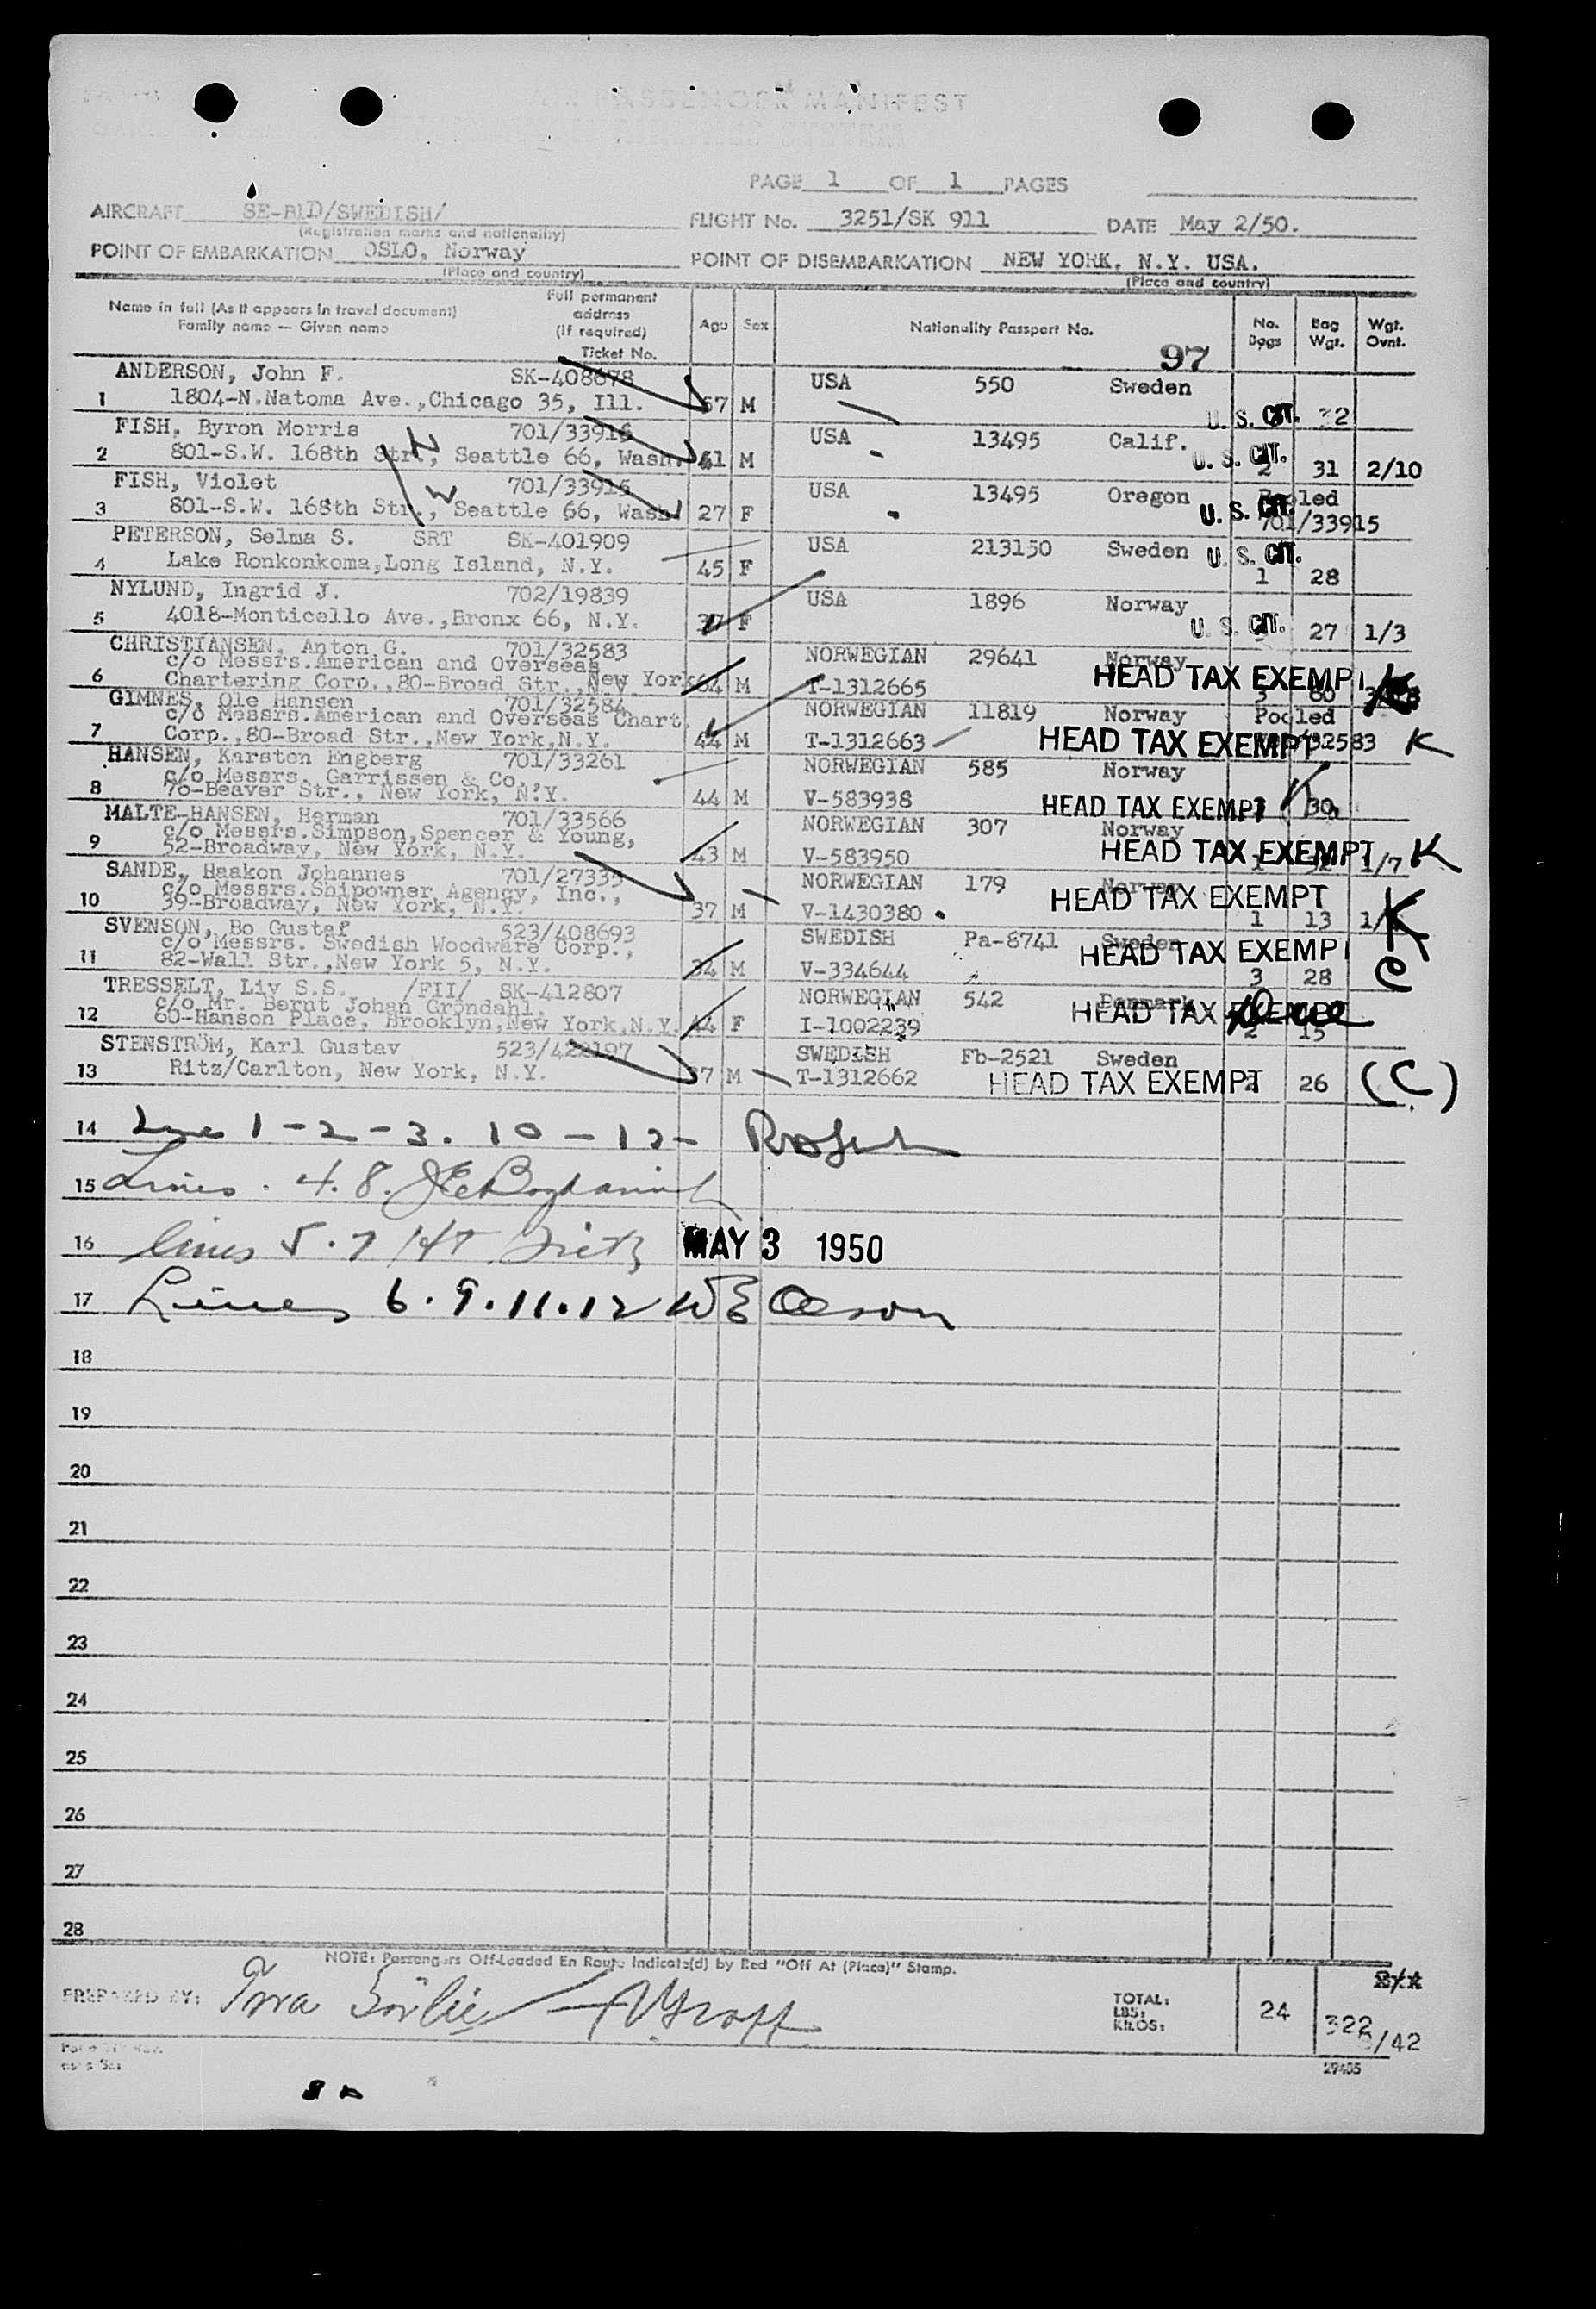 AIR PASSENGER MANIFEST
PAGE 1 OF 1 PAGES
AIRCRAFT SE-BLD/SWEDISH/ FLIGHT No. 3251/SK 911 DATE May 2/50.
(Registration marks and nationality)
POINT OF EMBARKATION OSLO, Norway POINT OF DISEMBARKATION NEW YORK. N.Y. USA.
(Place and country) (Place and country)
Name in full (As it appears in travel document) Family name — Given name Full permanent address (If required) Ticket No. Age Sex Nationality Passport No. No. Bags Bag Wgt. Wgt. Ovnt.
97
ANDERSON, John F. SK-408678 USA 550 Sweden
1 1804-N.Natoma Ave.,Chicago 35, Ill. 67 M U. S. CIT. 32
FISH, Byron Morris 701/33916 USA 13495 Calif.
2 801-S.W. 168th Str., Seattle 66, Wash. 41 M U. S. CIT. 2 31 2/10
FISH, Violet 701/33915 USA 13495 Oregon Pooled
3 801-S.W. 168th Str., Seattle 66, Wash. 27 F U. S. CIT. 701/33915
PETERSON, Selma S. SRT SK-401909 USA 213150 Sweden U. S. CIT.
4 Lake Ronkonkoma,Long Island, N.Y. 45 F 1 28
NYLUND, Ingrid J. 702/19839 USA 1896 Norway
5 4018-Monticello Ave.,Bronx 66, N.Y. 37 F U. S. CIT. 27 1/3
CHRISTIANSEN, Anton G. 701/32583 NORWEGIAN 29641 Norway
c/o Messrs.American and Overseas
6 Chartering Corp.,80-Broad Str.,New York N.Y. 64 M T-1312665 HEAD TAX EXEMPT 3 80
GIMNES, Ole Hansen 701/32584 NORWEGIAN 11819 Norway Pooled
c/o Messrs.American and Overseas Chart.
7 Corp.,80-Broad Str.,New York,N.Y. 44 M T-1312663 HEAD TAX EXEMPT 701/32583 K
HANSEN, Karsten Engberg 701/33261 NORWEGIAN 585 Norway
c/o Messrs. Garrissen & Co.,
8 76-Beaver Str., New York, N.Y. 44 M V-583938 HEAD TAX EXEMPT K 30
MALTE-HANSEN, Herman 701/33566 NORWEGIAN 307 Norway
c/o Messrs.Simpson,Spencer & Young,
9 52-Broadway, New York, N.Y. 43 M V-583950 HEAD TAX EXEMPT 1 32 1/7 K
SANDE, Haakon Johannes 701/27335 NORWEGIAN 179 Norway
c/o Messrs.Shipowner Agency, Inc., HEAD TAX EXEMPT
10 39-Broadway, New York, N.Y. 37 M V-1430380 1 13 K
SVENSON, Bo Gustaf 523/408693 SWEDISH Pa-8741 Sweden
c/o Messrs. Swedish Woodware Corp., HEAD TAX EXEMPT
11 82-Wall Str.,New York 5, N.Y. 34 M V-334644 3 28 C
TRESSELT, Liv S.S. /FII/ SK-412807 NORWEGIAN 542 Denmark
c/o Mr. Bernt Johan Gröndahl, HEAD TAX EXEMPT
12 60-Hanson Place, Brooklyn,New York,N.Y. 44 F I-1002239 2 15
STENSTRÖM, Karl Gustav 523/422197 SWEDISH Fb-2521 Sweden
13 Ritz/Carlton, New York, N.Y. 37 M T-1312662 HEAD TAX EXEMPT 2 26 (C)
14 1-2-3. 10-12-
15 Lines. 4. 8.
16 lines 5. 7 MAY 3 1950
17 Lines 6. 9. 11. 12 W E Oeson
18
19
20
21
22
23
24
25
26
27
28
NOTE: Passengers Off-Loaded En Route Indicate(d) by Red "Off At (Place)" Stamp.
PREPARED BY: TOTAL: LBS: KILOS: 24 322 8/42
29485